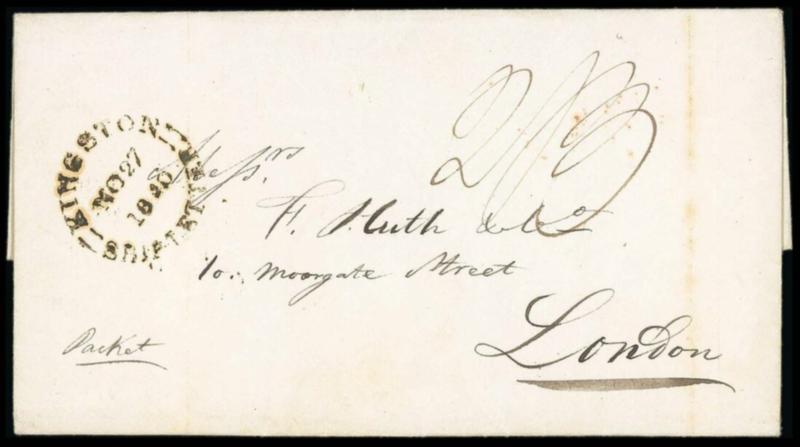 KINGSTON J
NO 27
1840
SHIP LETTER
2/3
Messrs.
F. Huth & Co
10. Moorgate Street
London
Packet